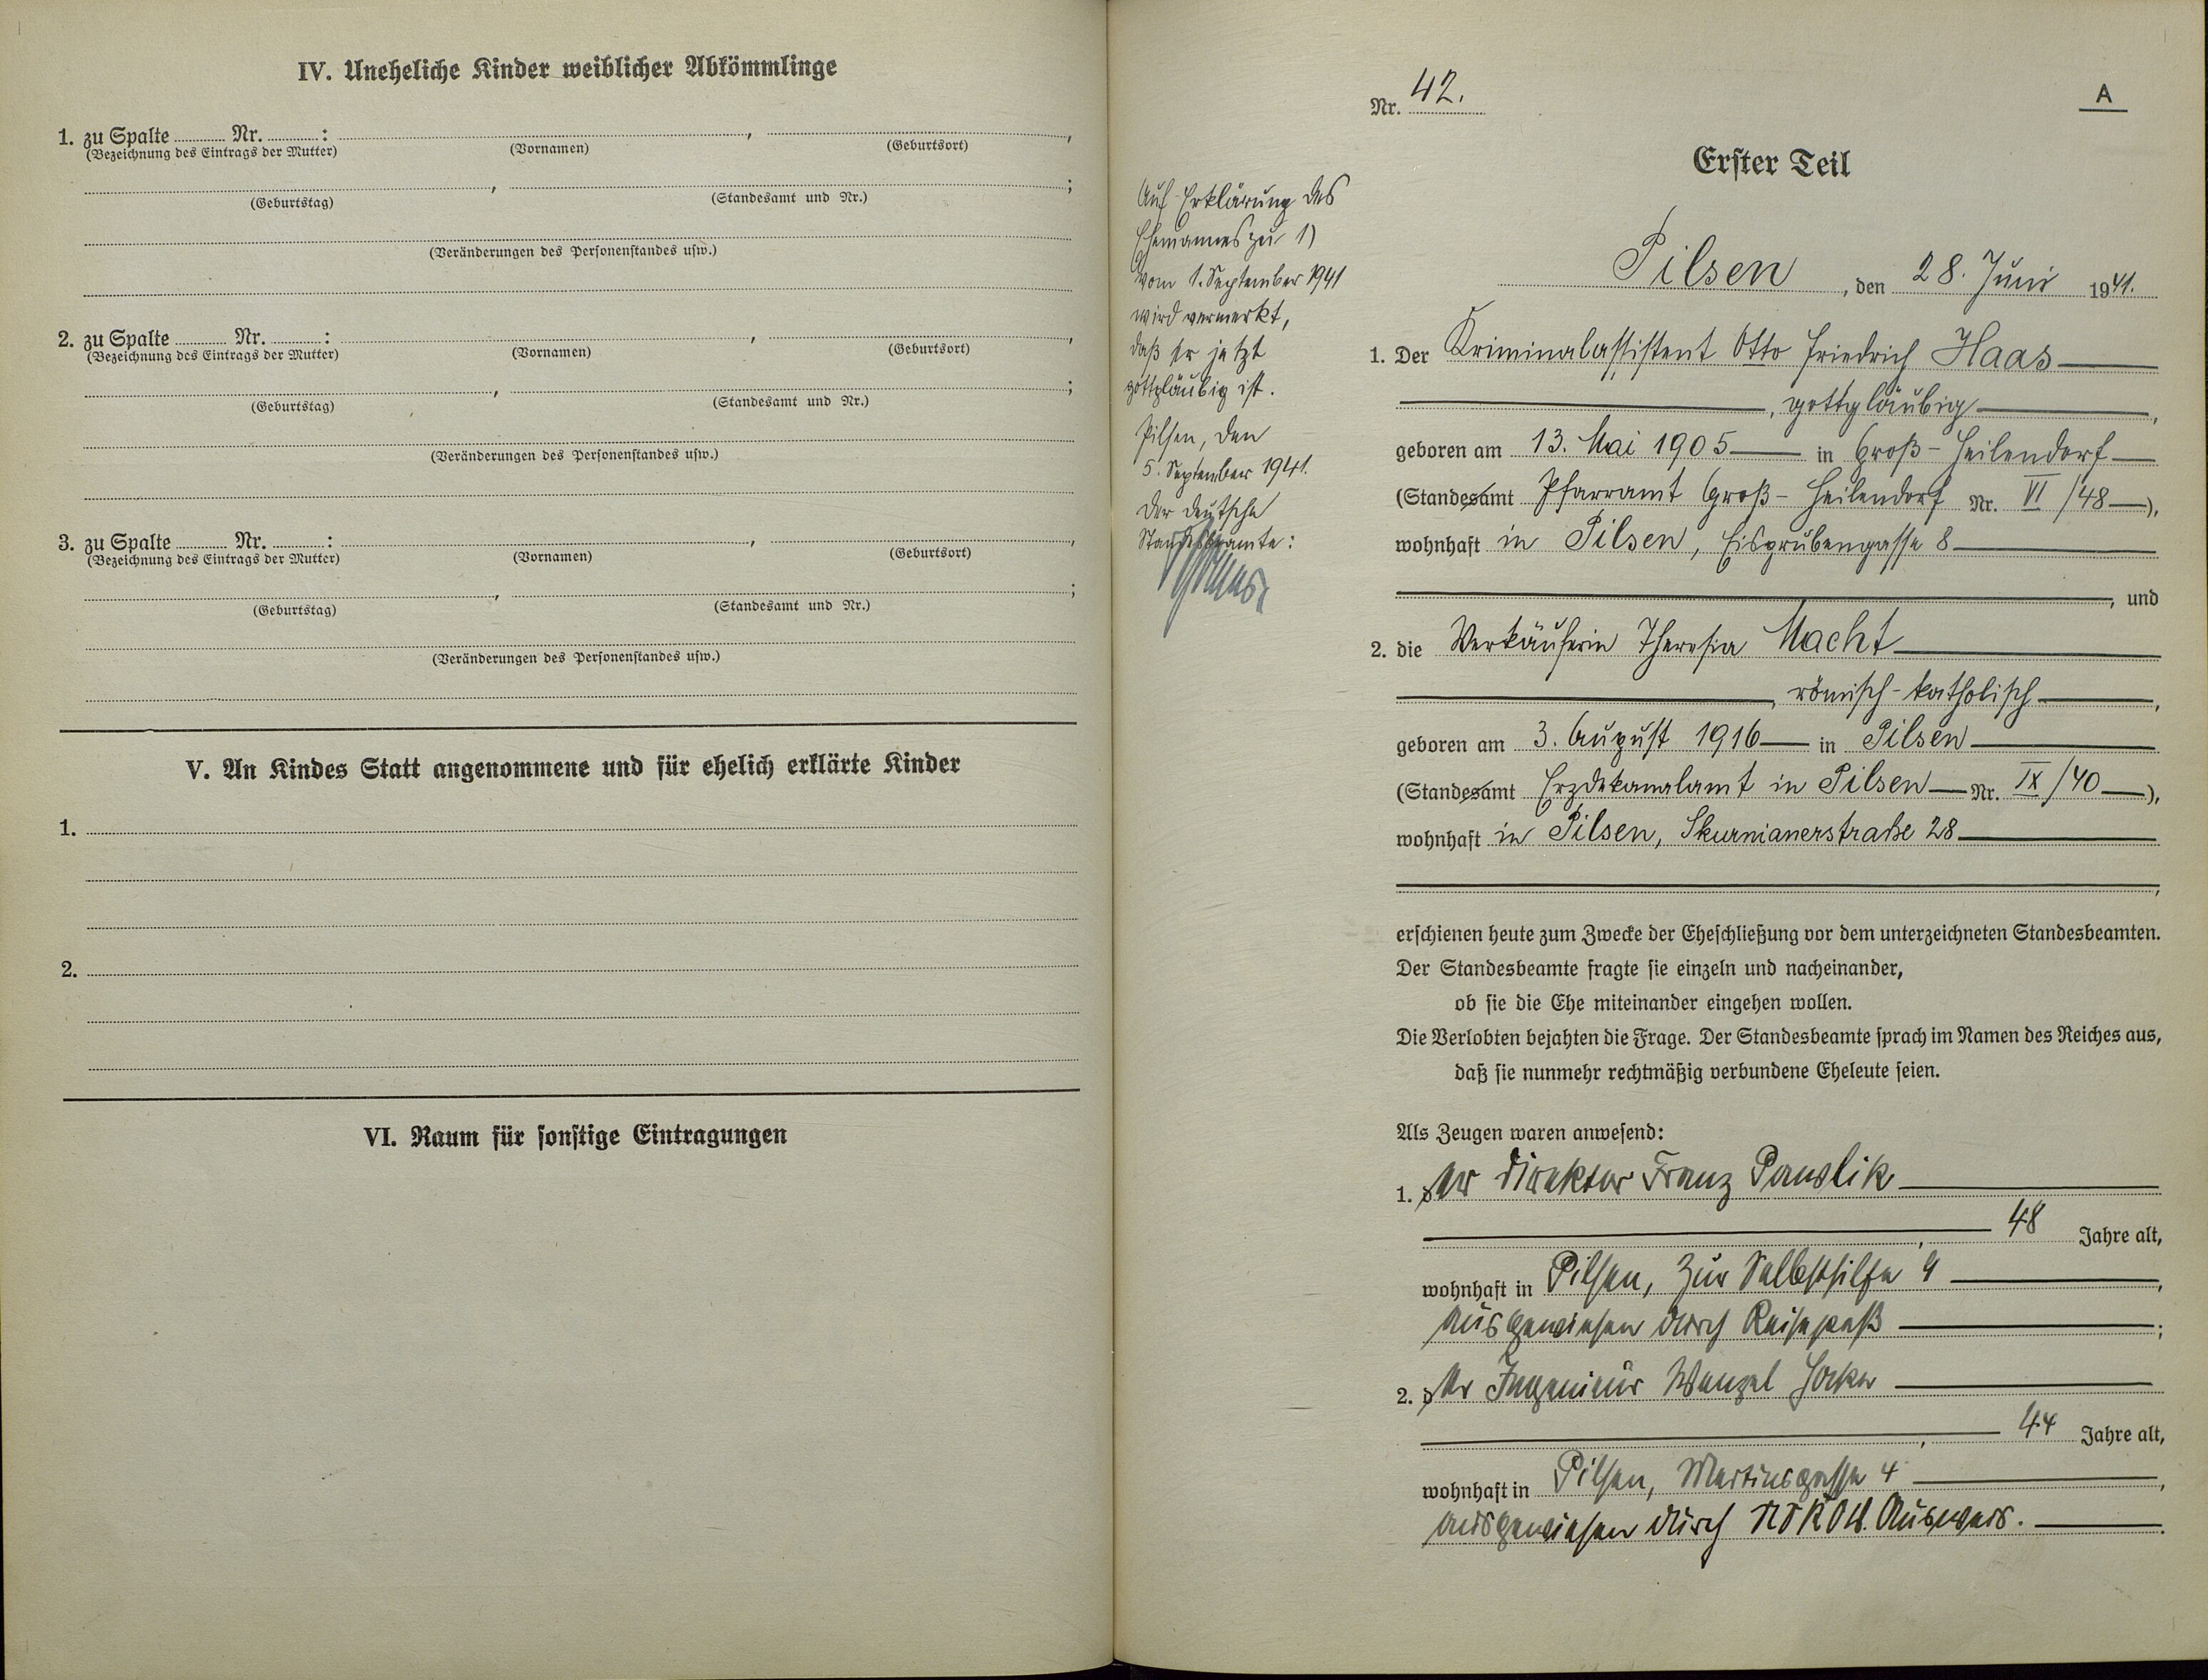 IV. Uneheliche Kinder weiblicher Abkömmlinge
1. zu Spalte ........ Nr. ........ : ........ , ........ ,
(Bezeichnung des Eintrags der Mutter) (Vornamen) (Geburtsort)
........ , ........ ;
(Geburtstag) (Standesamt und Nr.)
(Veränderungen des Personenstandes usw.)
2. zu Spalte ........ Nr. ........ : ........ , ........ ,
(Bezeichnung des Eintrags der Mutter) (Vornamen) (Geburtsort)
........ , ........ ;
(Geburtstag) (Standesamt und Nr.)
(Veränderungen des Personenstandes usw.)
3. zu Spalte ........ Nr. ........ : ........ , ........ ,
(Bezeichnung des Eintrags der Mutter) (Vornamen) (Geburtsort)
........ , ........ ;
(Geburtstag) (Standesamt und Nr.)
(Veränderungen des Personenstandes usw.)
V. An Kindes Statt angenommene und für ehelich erklärte Kinder
1.
2.
VI. Raum für sonstige Eintragungen
Nr. 42.
A
Erster Teil
Auf Erklärung des
Ehemannes zu 1)
vom 1. September 1941
wird vermerkt,
daß er jetzt
gottgläubig ist.
Pilsen, den
5. September 1941.
Der deutsche
Standesbeamte:
Pilsen, den 28. Juni 1941.
1. Der Kriminalassistent Otto Friedrich Haas
, gottgläubig ,
geboren am 13. Mai 1905 in Groß-Heilendorf
(Standesamt Pfarramt Groß-Heilendorf Nr. VI/48),
wohnhaft in Pilsen, Eisgrubengasse 8
, und
2. die Verkäuferin Theresia Macht
, römisch-katholisch ,
geboren am 3. August 1916 in Pilsen
(Standesamt Erzdekanalamt in Pilsen Nr. IX/40),
wohnhaft in Pilsen, Skurnianerstraße 28
,
erschienen heute zum Zwecke der Eheschließung vor dem unterzeichneten Standesbeamten.
Der Standesbeamte fragte sie einzeln und nacheinander,
ob sie die Ehe miteinander eingehen wollen.
Die Verlobten bejahten die Frage. Der Standesbeamte sprach im Namen des Reiches aus,
daß sie nunmehr rechtmäßig verbundene Eheleute seien.
Als Zeugen waren anwesend:
1. der Direktor Franz Pauslik
, 48 Jahre alt,
wohnhaft in Pilsen, Zur Selbsthilfe 9 ,
ausgewiesen durch Reisepaß ;
2. der Ingenieur Wenzel
, 44 Jahre alt,
wohnhaft in Pilsen, Martinsgasse 4 ,
ausgewiesen durch Ausweis.